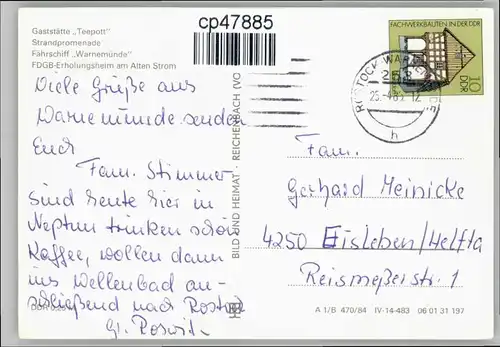 Gaststätte „Teepott"
Strandpromenade
Fährschiff „Warnemünde"
FDGB-Erholungsheim am Alten Strom
cp47885
FACHWERKBAUTEN IN DER DDR
10
DDR
ROSTOCK-WARN
252
h
BILD UND HEIMAT · REICHENBACH (VO
Viele Grüße aus
Warnemünde senden
Euch
Fam. Stimmer
sind heute hier in
Neptun trinken schön
Kaffee, wollen dann
ins Wellenbad an-
schließend nach Rostock
Fam.
Gerhard Meinicke
4250 Eisleben/Helfta
Reismeßerstr. 1
A 1/B 470/84 IV-14-483 06 01 31 197